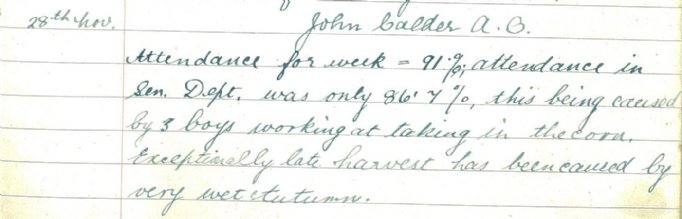 John Calder A.O.
28th Nov.
Attendance for week - 91%, attendance in
Sen. Dept. was only 86·7%, this being caused
by 3 boys working at taking in the corn.
Exceptionally late harvest has been caused by
very wet Autumn.